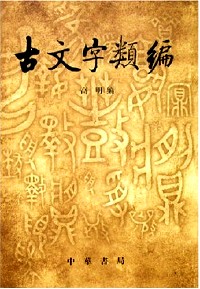 古文字類編
高明編
中華書局